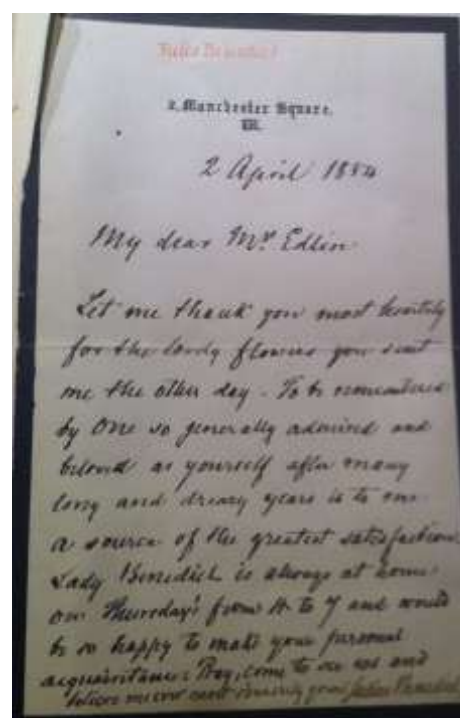 Jules Benedict
2, Manchester Square,
W.
2 April 1884
My dear Mr Edlin
Let me thank you most heartily
for the lovely flowers you sent
me the other day - To be remembered
by One so generally admired and
beloved as yourself after many
long and dreary years is to me
a source of the greatest satisfaction
Lady Benedict is always at home
on Thursday's from 4 to 7 and would
be so happy to make your personal
acquaintance. Pray, come to see us and
believe me ever most sincerely yours Jules Benedict